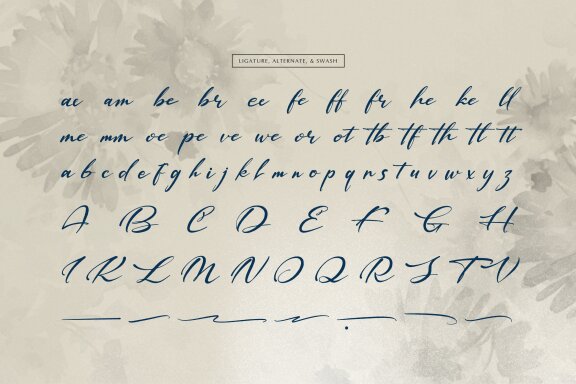 LIGATURE, ALTERNATE, & SWASH
ae am be br ee fe ff fr he ke ll
me mm oe pe ve we or ot tb tf th tl tt
a b c d e f g h i j k l m n o p q r s t u v w x y z
A B C D E F G H
I K L M N O Q R S T V